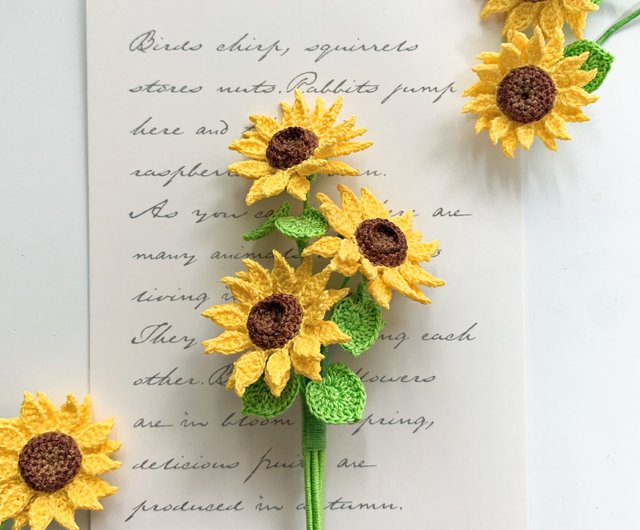 Birds chirp, squirrels
stores nuts. Rabbits jump
here and
As you can are
many animals
living
They each
other. flowers
are in bloom spring,
delicious fruit are
produced in autumn.